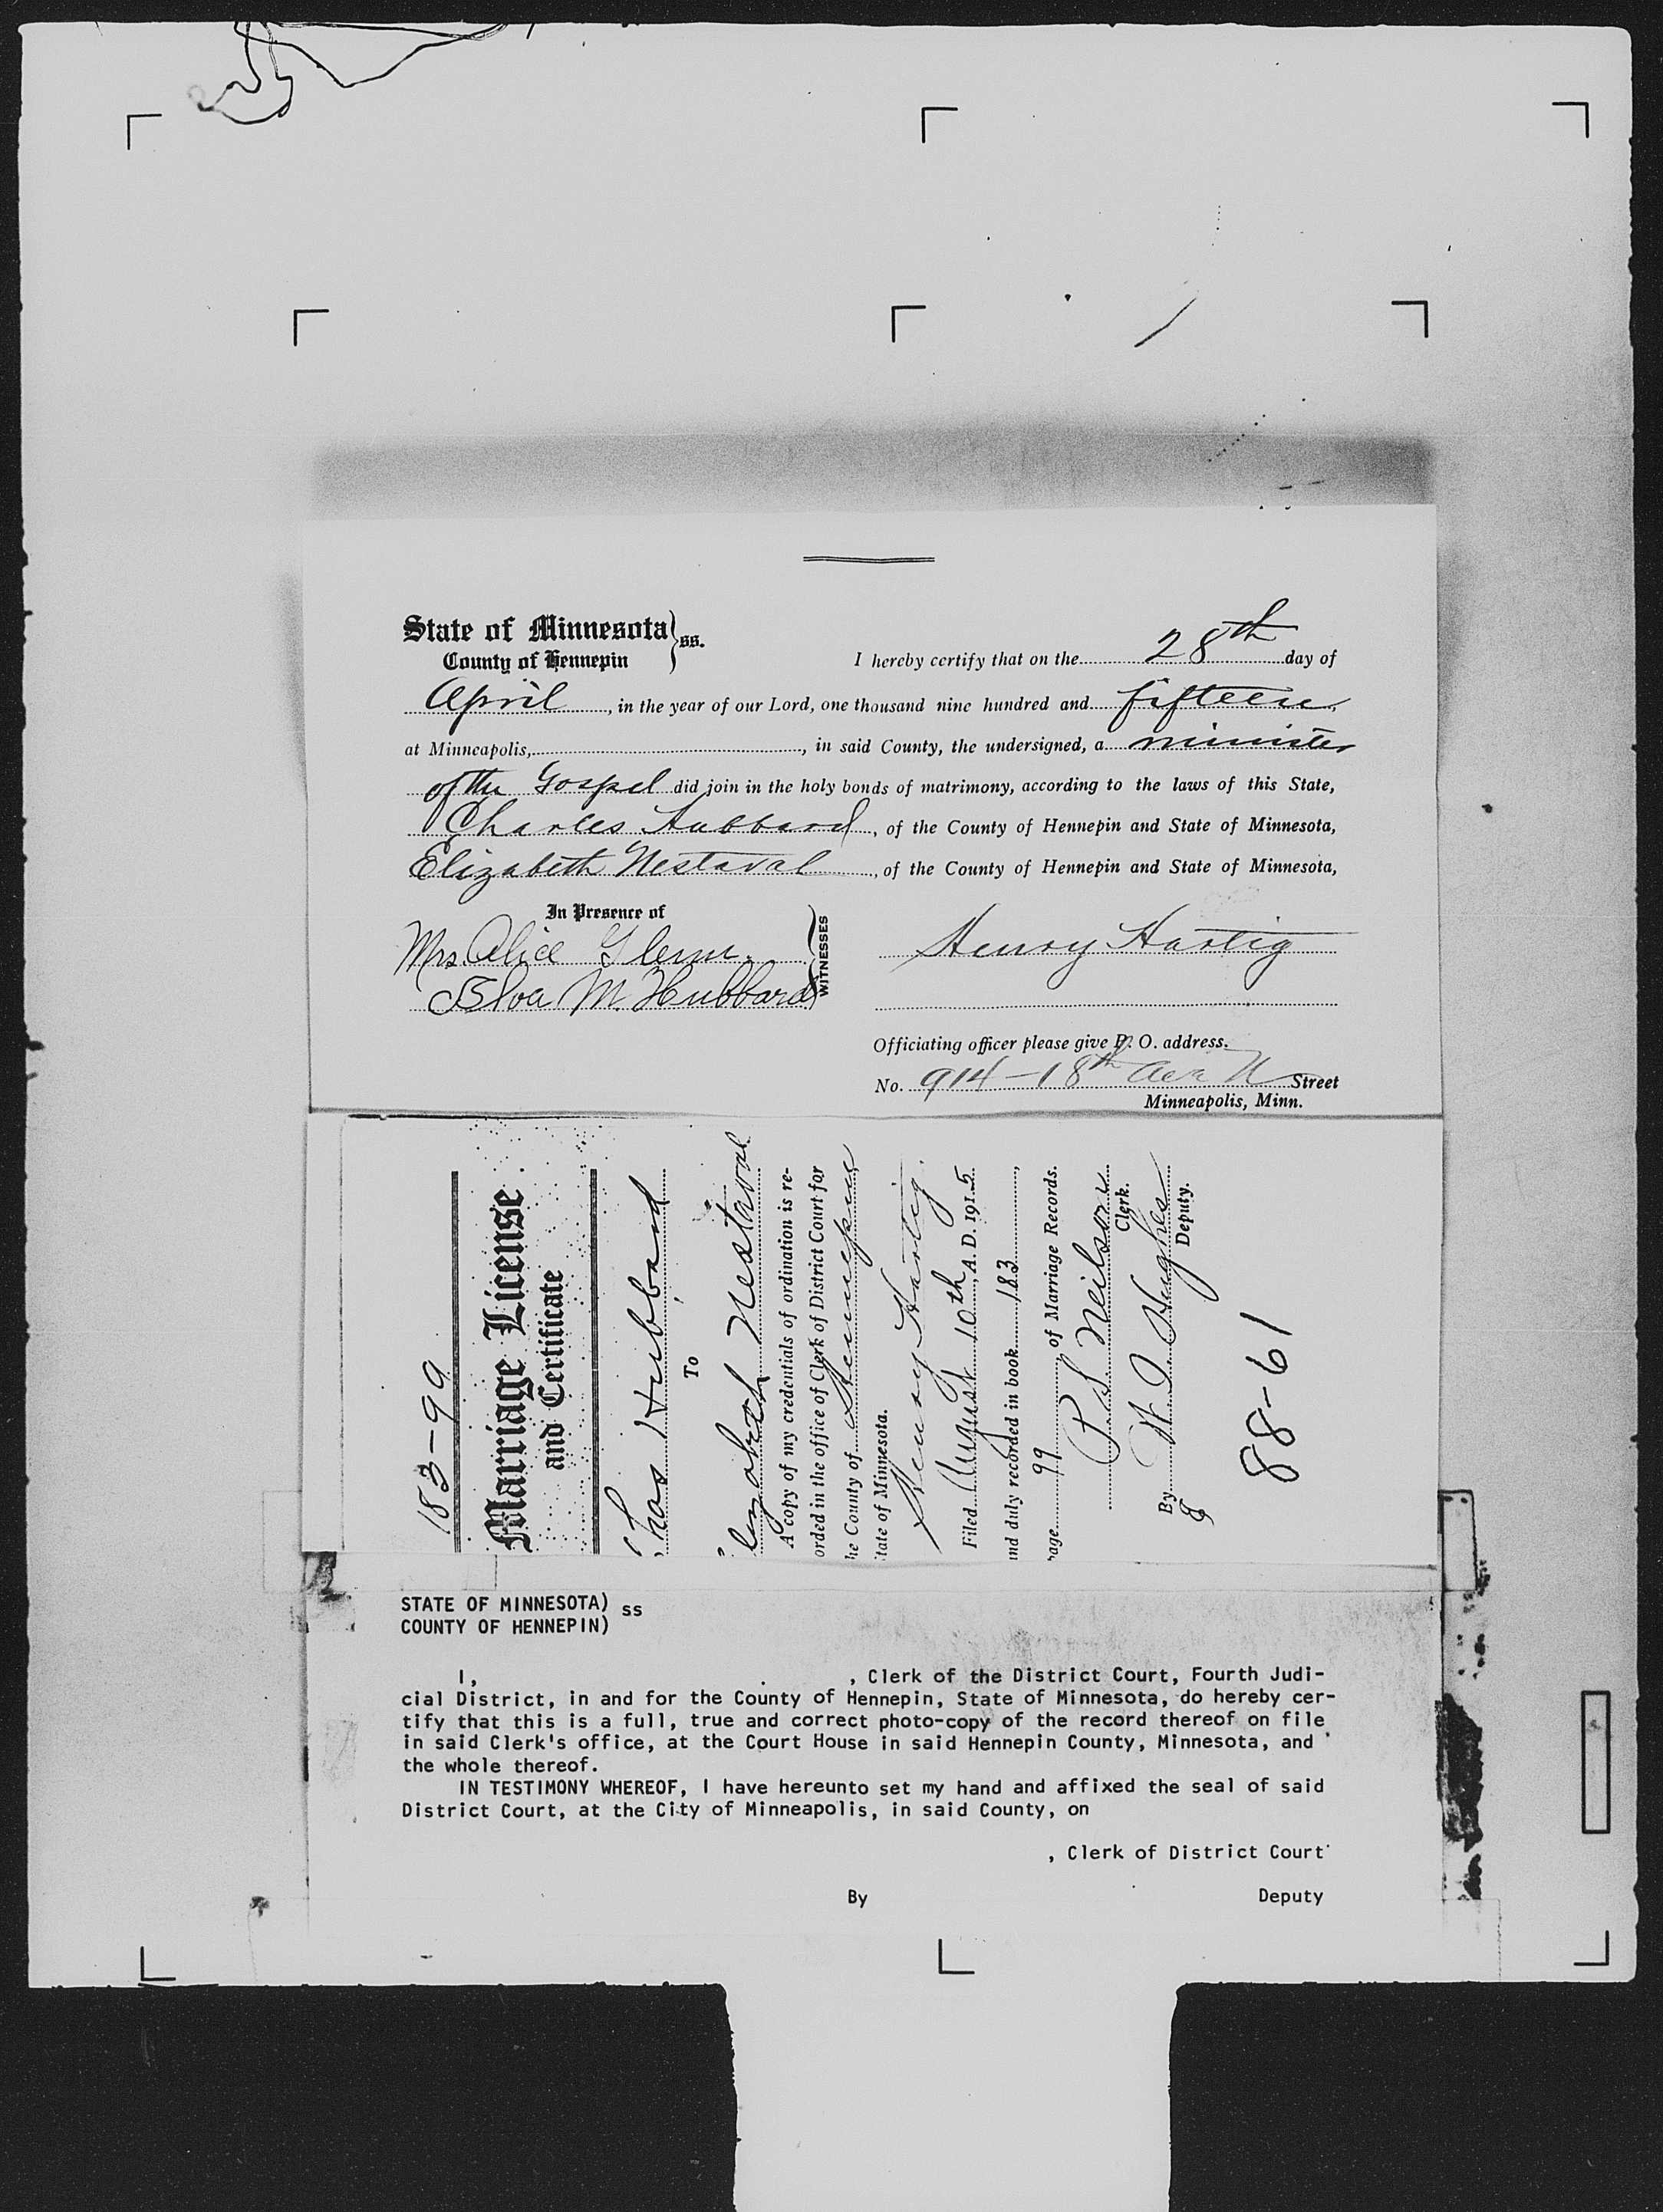 State of Minnesota } ss.
County of Hennepin
I hereby certify that on the 28th day of
April, in the year of our Lord, one thousand nine hundred and fifteen,
at Minneapolis, , in said County, the undersigned, a minister
of the Gospel did join in the holy bonds of matrimony, according to the laws of this State,
Charles Hubbard, of the County of Hennepin and State of Minnesota,
Elizabeth Nestaval, of the County of Hennepin and State of Minnesota,
In Presence of
Mrs. Alice Glenn.
M. Hubbard
WITNESSES
Henry Hartig
Officiating officer please give P. O. address.
No. 914-18th Ave N Street
Minneapolis, Minn.
183-99
Marriage License
and Certificate
Chas Hubbard
To
Elizabeth Nestaval
A copy of my credentials of ordination is re-
orded in the office of Clerk of District Court for
he County of Hennepin
tate of Minnesota.
Henry Hartig.
Filed August 10th, A. D. 1915
nd duly recorded in book 183,
age 99, of Marriage Records.
P. S. Neilson
Clerk.
By Hughes
Deputy.
88-61
STATE OF MINNESOTA) ss
COUNTY OF HENNEPIN)
I, , Clerk of the District Court, Fourth Judi-
cial District, in and for the County of Hennepin, State of Minnesota, do hereby cer-
tify that this is a full, true and correct photo-copy of the record thereof on file
in said Clerk's office, at the Court House in said Hennepin County, Minnesota, and
the whole thereof.
IN TESTIMONY WHEREOF, I have hereunto set my hand and affixed the seal of said
District Court, at the City of Minneapolis, in said County, on
, Clerk of District Court
By Deputy